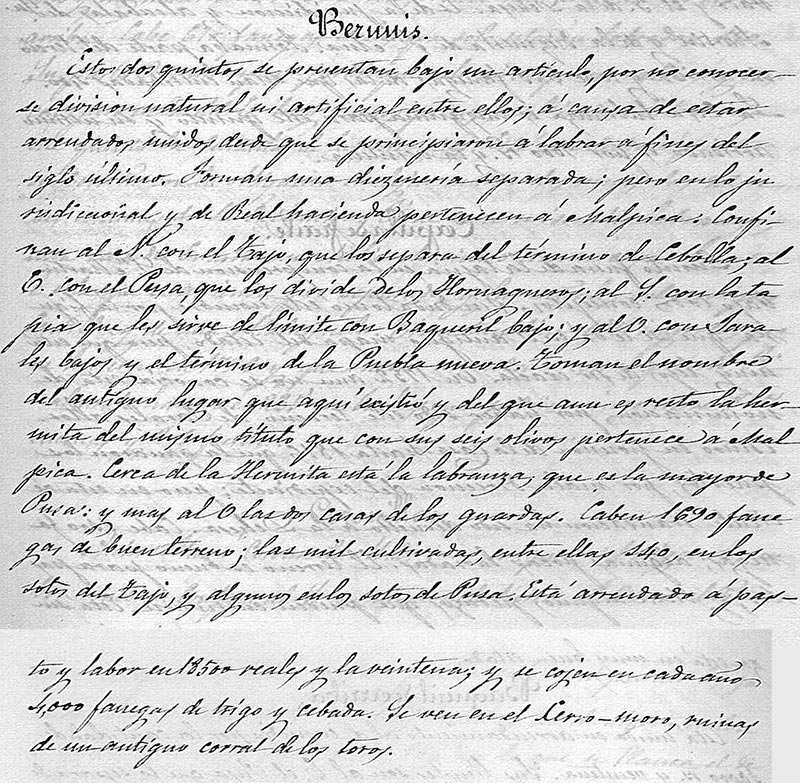 Bernuis.
Estos dos quintos se presentan bajo un artículo, por no conocer-
se division natural ni artificial entre ellos; á causa de estar
arrendados unidos desde que se principiaron á labrar á fines del
siglo último. Forman una diezmería separada; pero en lo ju
risdiccional y de Real hacienda pertenecen á Malpica. Confi-
nan al N. con el Tajo, que los separa del término de Cebolla; al
E. con el Pusa, que los divide de los Hornaqueros; al S. con la ta
pia que les sirve de límite con Baqueril bajo; y al O. con Jara
les bajos y el término de la Puebla nueva. Toman el nombre
del antiguo lugar que aquí existió y del que aun es resto la her-
mita del mismo título que con sus seis olivos pertenece á Mal
pica. Cerca de la Hermita está la labranza, que es la mayor de
Pusa: y mas al O las dos casas de los guardas. Caben 1690 fane
gas de buen terreno; las mil cultivadas, entre ellas 140, en los
sotos del Tajo, y algunos en los sotos de Pusa. Está arrendado á pas-
to y labor en 18500 reales y la veintena; y se cojen en cada año
4,000 fanegas de trigo y cebada. Se ven en el Xerro-moro, ruinas
de un antiguo corral de los toros.